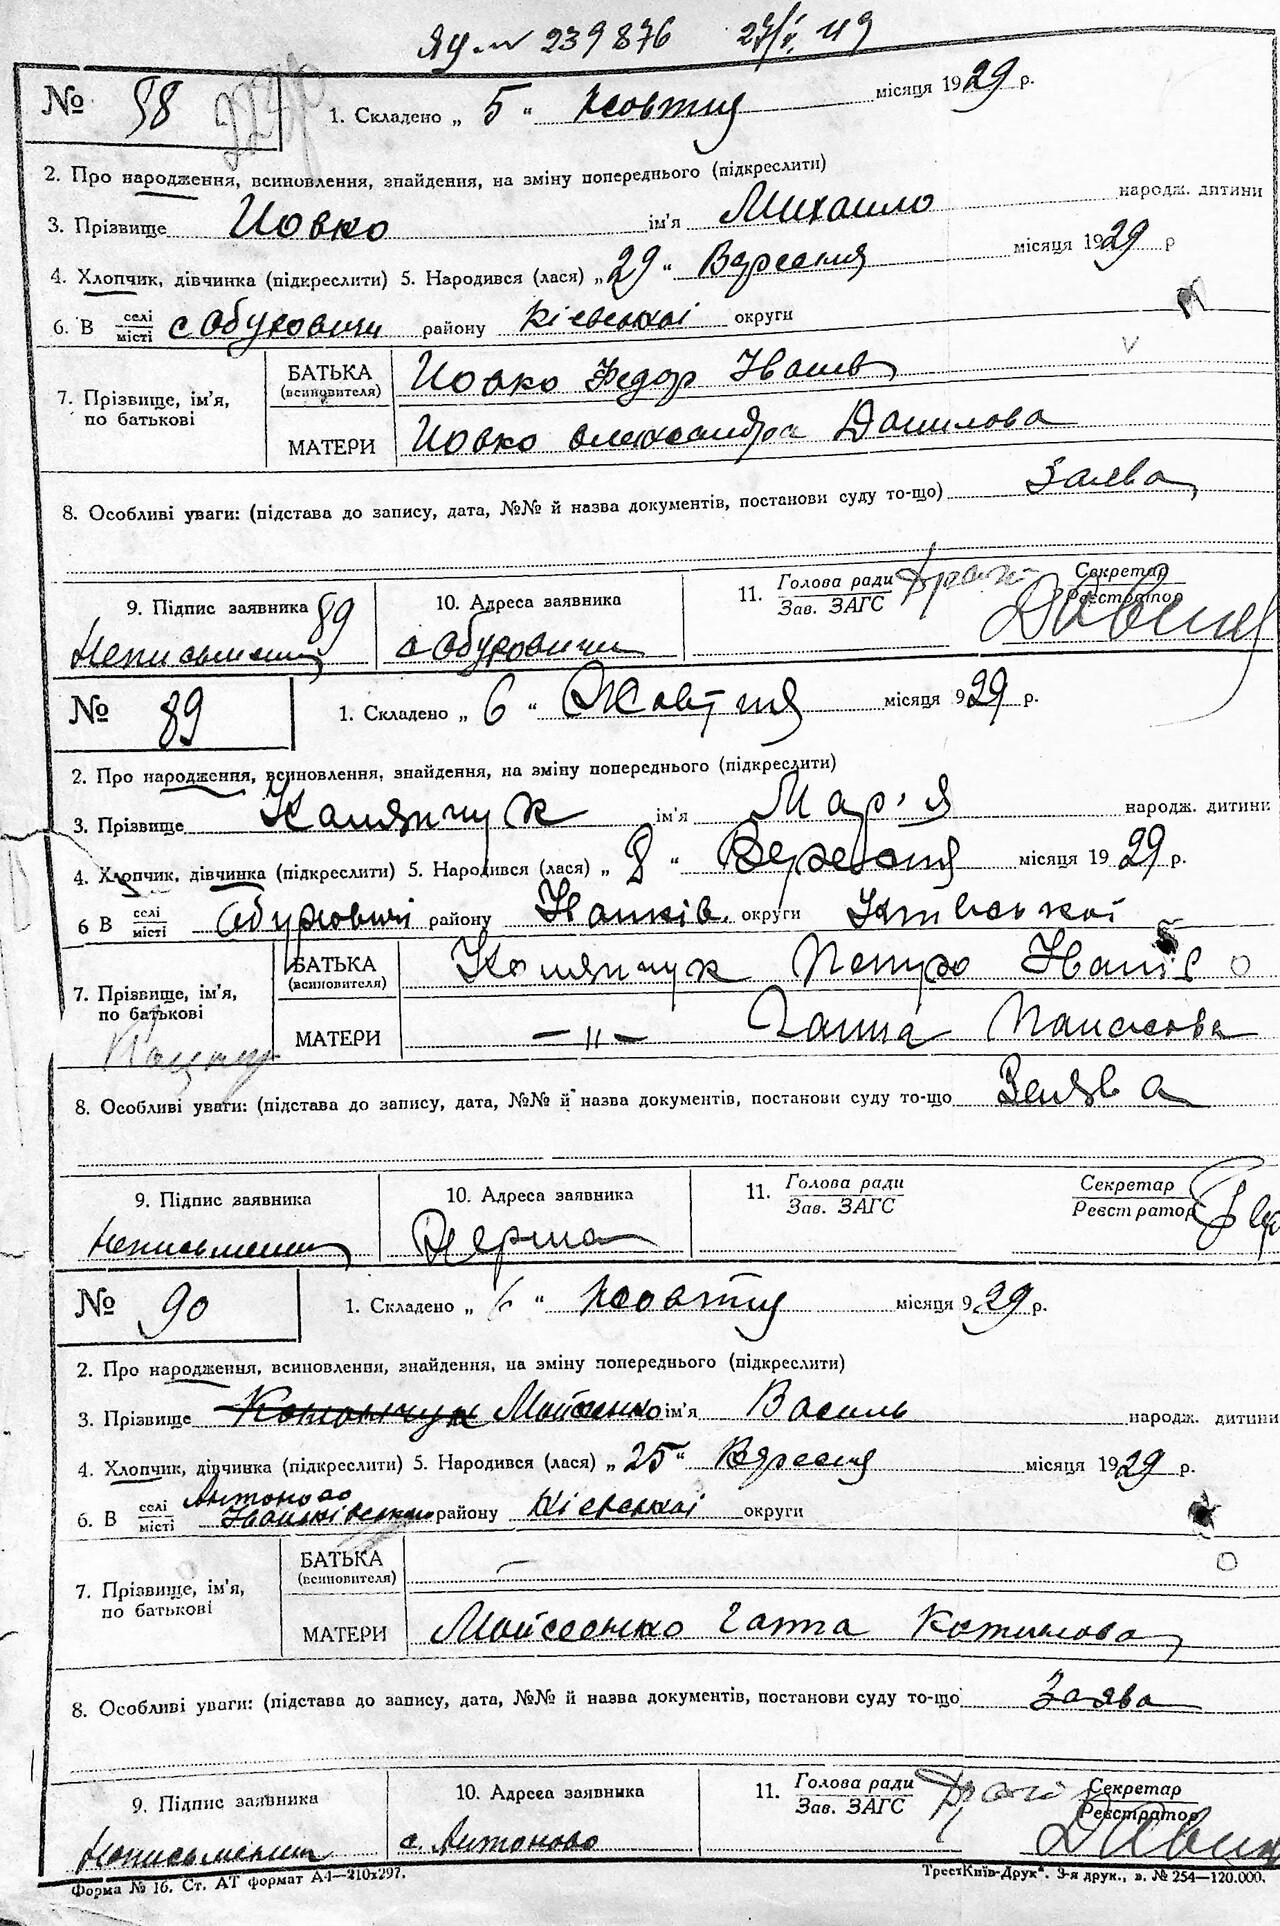 ЯЧ № 239876 27/V. 49
№ 58 1. Складено „ 5 “ жовтня місяця 1929 р.
2. Про народження, всиновлення, знайдення, на зміну попереднього (підкреслити)
3. Прізвище Йовко ім'я Михаило народж. дитини
4. Хлопчик, дівчинка (підкреслити) 5. Народився (лася) „ 29 “ Вересня місяця 1929 р
6. В селі/місті с Обуховичи району Кіевськоі округи
7. Прізвище, ім'я, по батькові
БАТЬКА (всиновителя) Йовко Федор Іванів
МАТЕРИ Йовко Александра Данилова
8. Особливі уваги: (підстава до запису, дата, №№ й назва документів, постанови суду то-що) Заява
9. Підпис заявника 89 10. Адреса заявника 11. Голова ради Зав. ЗАГС Секретар Реєстратор
Неписьмений с Обуховичи
№ 89 1. Складено „ 6 “ Жовтня місяця 929 р.
2. Про народження, всиновлення, знайдення, на зміну попереднього (підкреслити)
3. Прізвище ім'я Мар'я народж. дитини
4. Хлопчик, дівчинка (підкреслити) 5. Народився (лася) „ 8 “ Вересня місяця 1929 р.
6 В селі/місті Обуховичі району Іванків. округи Київської
7. Прізвище, ім'я, по батькові
БАТЬКА (всиновителя) Петро Іванів
МАТЕРИ — " — Ганна
8. Особливі уваги: (підстава до запису, дата, №№ й назва документів, постанови суду то-що Заява
9. Підпис заявника 10. Адреса заявника 11. Голова ради Зав. ЗАГС Секретар Реєстратор
Неписьмений
№ 90 1. Складено „ “ жовтня місяця 929 р.
2. Про народження, всиновлення, знайдення, на зміну попереднього (підкреслити)
3. Прізвище Мойсеенко ім'я Василь народж. дитини
4. Хлопчик, дівчинка (підкреслити) 5. Народився (лася) „ 25 “ Вересня місяця 1929 р.
Антоново
6. В селі/місті Іванківського району Кіевськоі округи
7. Прізвище, ім'я, по батькові
БАТЬКА (всиновителя) —
МАТЕРИ Мойсеенко Ганна
8. Особливі уваги: (підстава до запису, дата, №№ й назва документів, постанови суду то-що Заява
9. Підпис заявника 10. Адреса заявника 11. Голова ради Зав. ЗАГС Секретар Реєстратор
Неписьмений с. Антоново
Форма № 16. Ст. АТ формат А4—210x297. ТрестКиїв-Друк“. 3-я друк., в. № 254—120.000.